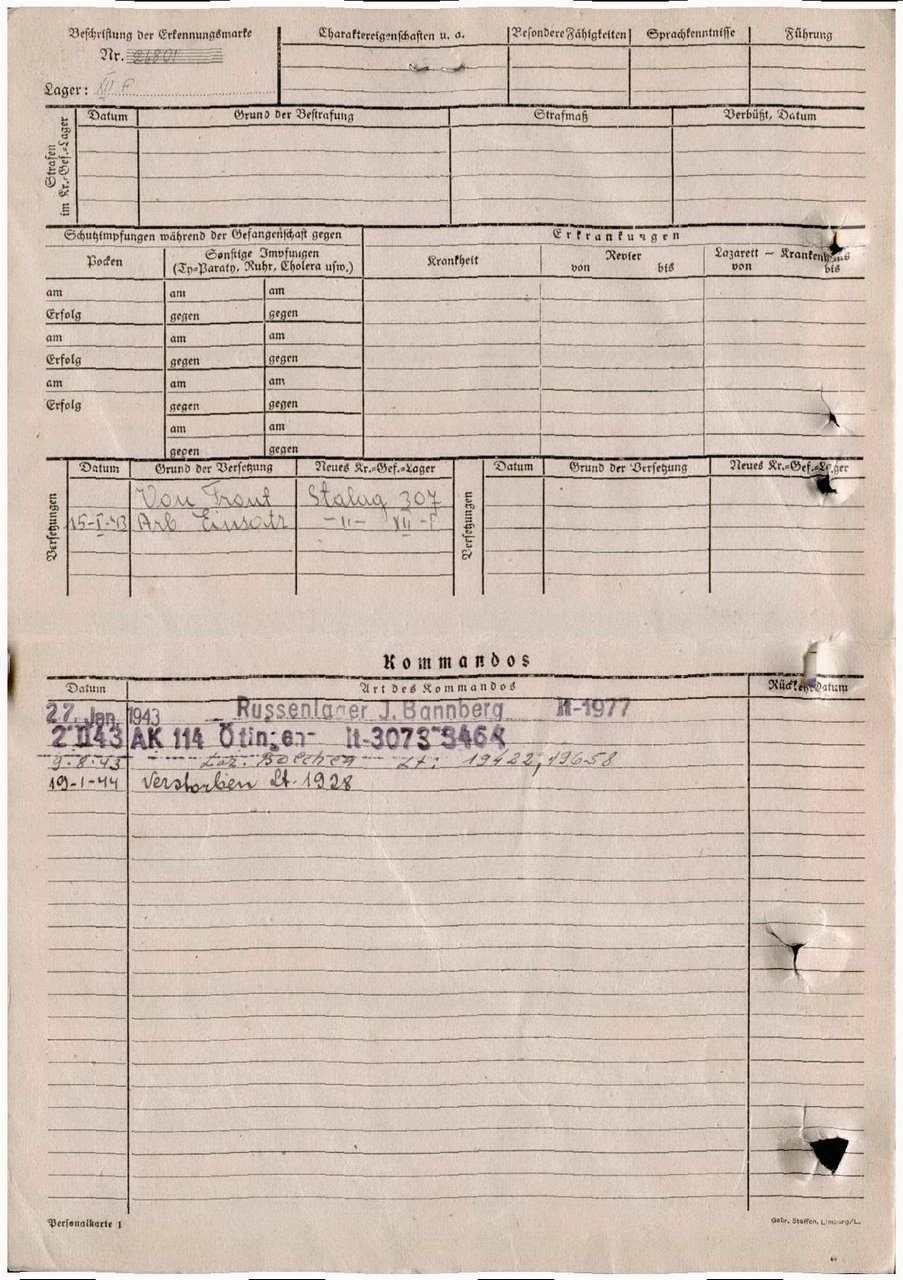 Beschriftung der Erkennungsmarke
Nr. 24801
Lager: XII F
Charaktereigenschaften u. a.
Besondere Fähigkeiten
Sprachkenntnisse
Führung
Strafen im Kr.-Gef.-Lager
Datum
Grund der Bestrafung
Strafmaß
Verbüßt, Datum
Schutzimpfungen während der Gefangenschaft gegen
Erkrankungen
Pocken
Sonstige Impfungen
(Ty-Paraty, Ruhr, Cholera usw.)
Krankheit
Revier
von bis
Lazarett — Krankenhaus
von bis
am am am
Erfolg gegen gegen
am am am
Erfolg gegen gegen
am am am
Erfolg gegen gegen
am am
gegen gegen
Versetzungen
Datum Grund der Versetzung Neues Kr.-Gef.-Lager
Von Front Stalag 307
15-I-43 Arb. Einsatz -"- XII-F
Versetzungen
Datum Grund der Versetzung Neues Kr.-Gef.-Lager
Kommandos
Datum Art des Kommandos Rückkehr Datum
27. Jan. 1943 Russenlager J. Bannberg lt-1977
2 II 43 AK 114 Ötingen- lt-3073-3464
9.8.43 Laz. Bolchen Lt: 19422, 19658
19-1-44 Verstorben Lt. 1928
Personalkarte 1
Gebr. Steffen, Limburg/L.